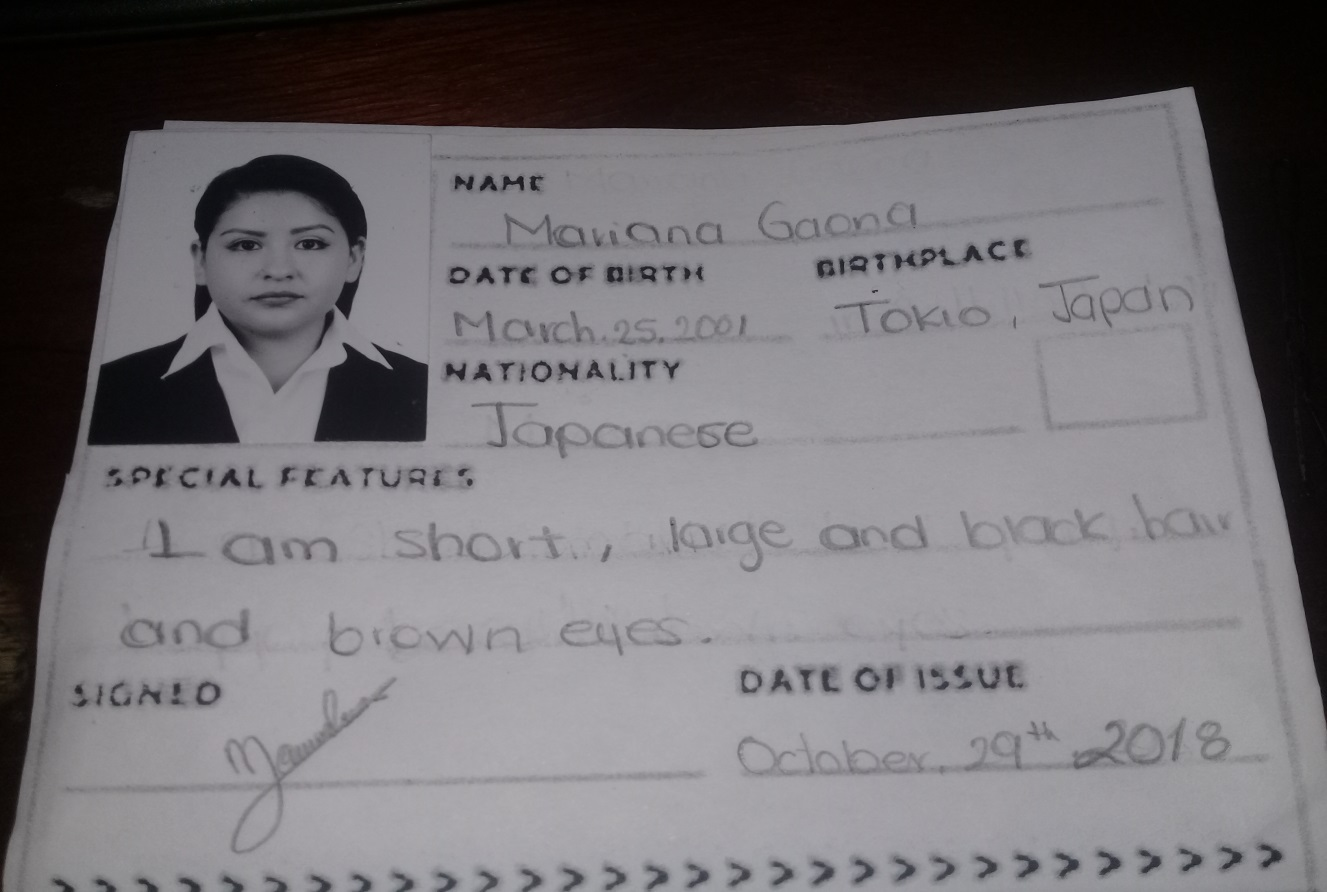 NAME
Mariana Gaona
DATE OF BIRTH BIRTHPLACE
March.25.2001 Tokio, Japan
NATIONALITY
Japanese
SPECIAL FEATURES
I am short, large and black hair
and brown eyes.
SIGNED DATE OF ISSUE
October. 29th 2018
>>>>>>>>>>>>>>>>>>>>>>>>>>>>>